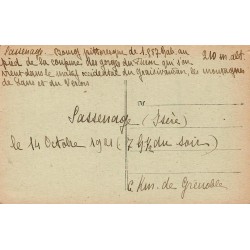 Sassenage - Bourg pittoresque de 1.887 hab. au
pied de la coupure des gorges du Furon qui s'ou-
vrent dans le massif occidental du Graisivaudan, les montagnes
de Lans et du Vercors
210 m alt.
Sassenage (Isère)
le 14 Octobre 1921 (7 h ½ du soir)
6 Kms. de Grenoble